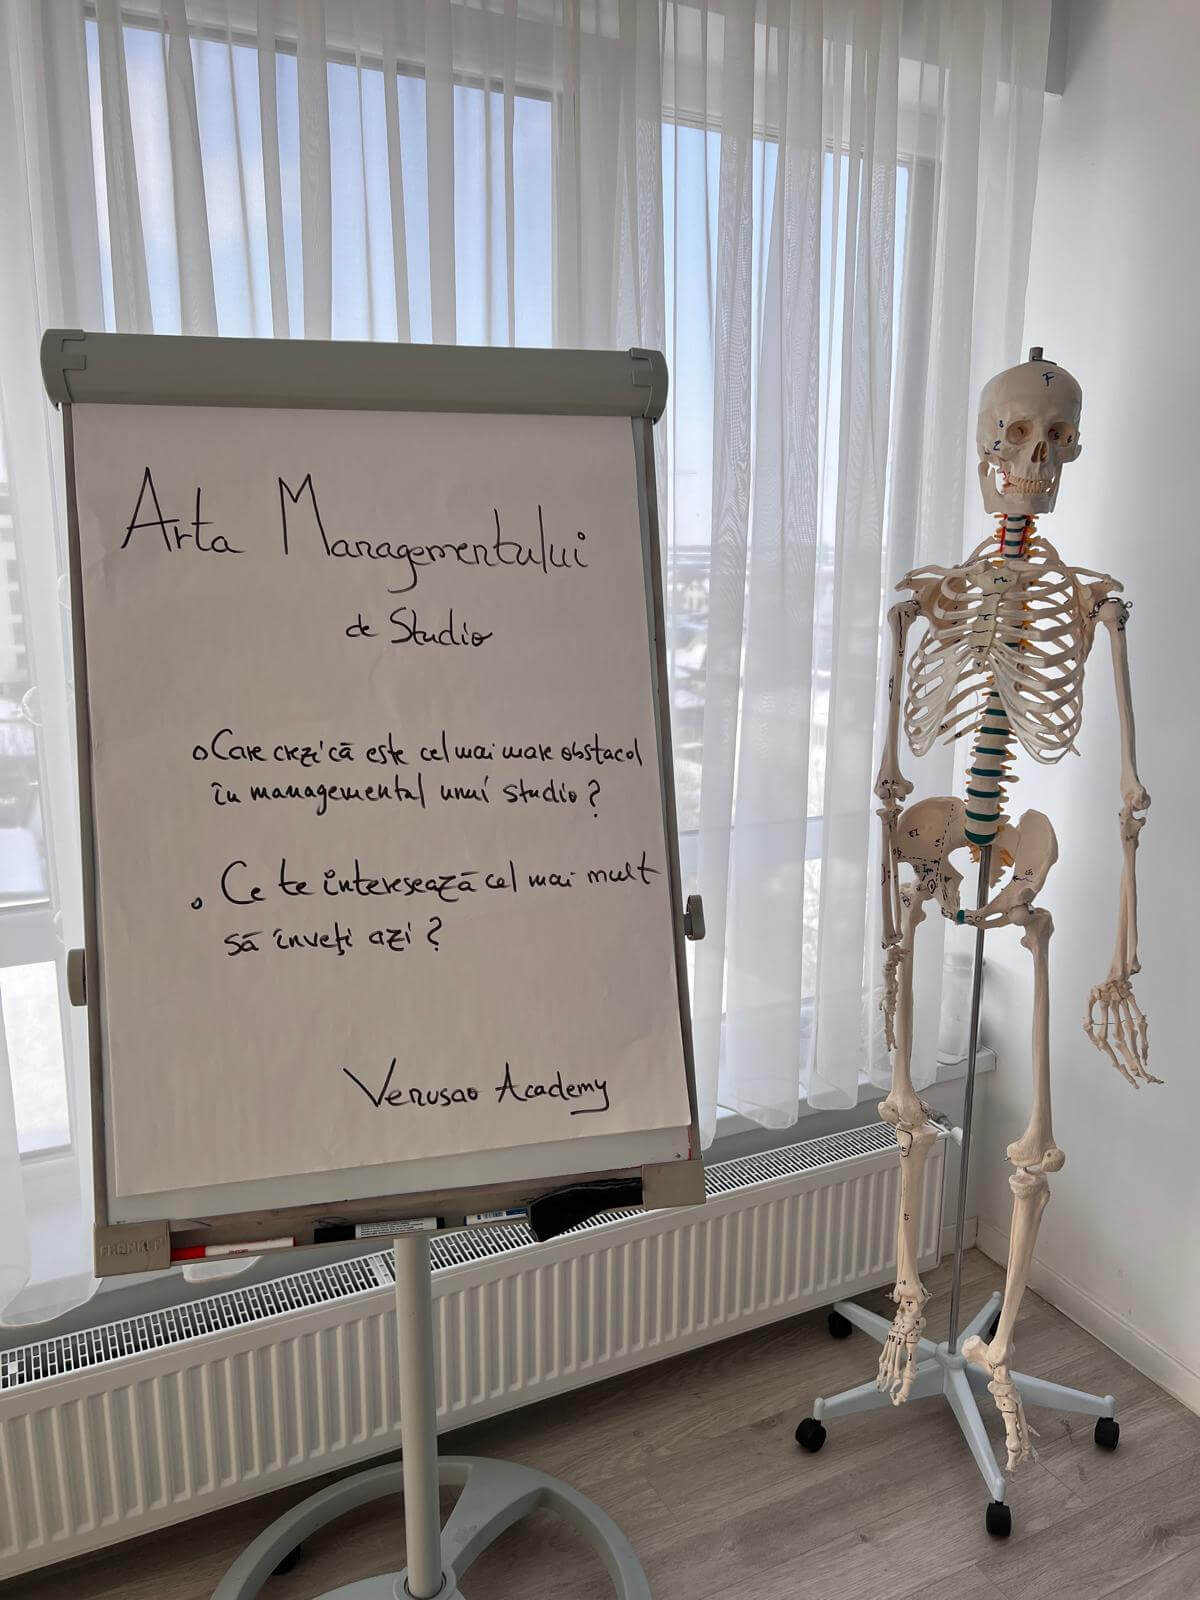 Arta Managementului
de Studio
Care crezi că este cel mai mare obstacol
în managementul unui studio?
Ce te interesează cel mai mult
să înveți azi?
Venusao Academy
F